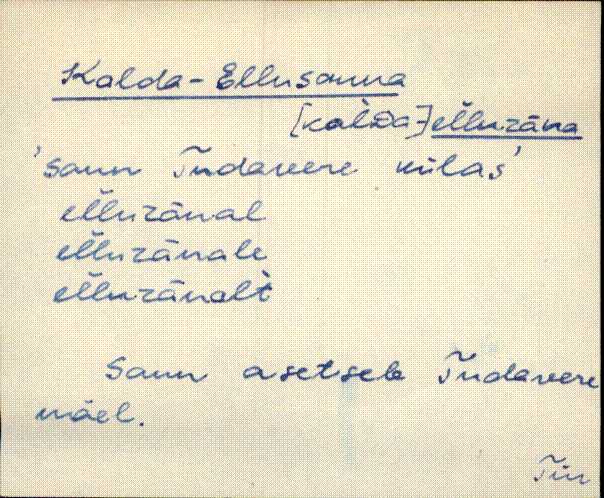 Kalda-Ellusauna
[kalDa-] elluzäna
'saun Tudavere külas'
elluzänal
elluzänale
elluzänalt
Saun asetseb Tudavere
mäel.